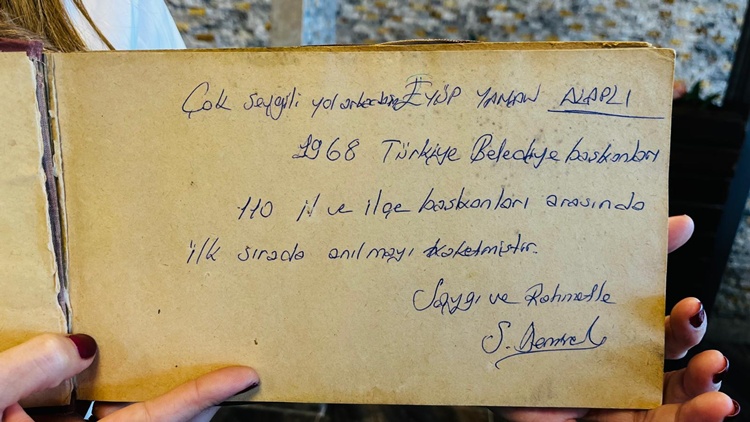 Çok sevgili yol arkadaşım EYÜP YAMAN ALAPLI
1968 Türkiye Belediye başkanları
110 il ve ilçe başkanları arasında
ilk sırada anılmayı haketmiştir.
Saygı ve Rahmetle
S. Demirel